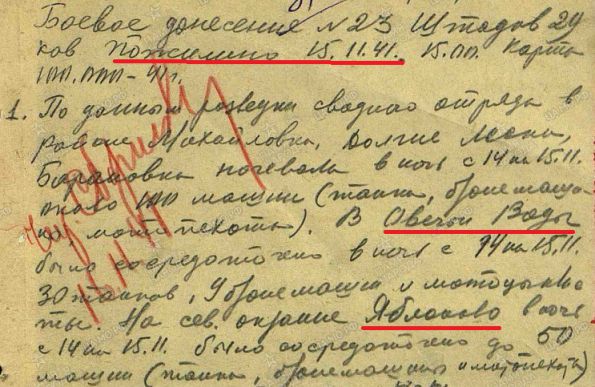 Боевое донесение №23 Штадов 29
ков Пожилино 15.11.41. 15.00. Карта
100.000-41г.
1. По данным разведки сводного отряда в
районе Михайловка, Долгие Лески,
Барановка ночевала в ночь с 14 на 15.11.
около 100 машин (танки, бронемаши
ны, мотопехота). В Овечьи Воды
было сосредоточено в ночь с 14 на 15.11.
30 танков, 9 бронемашин и мотоцикли
ты. На сев. окраине Яблоково в ночь
с 14 на 15.11. было сосредоточено до 50
машин (танки, бронемашины и мотопехота)
16.11.41